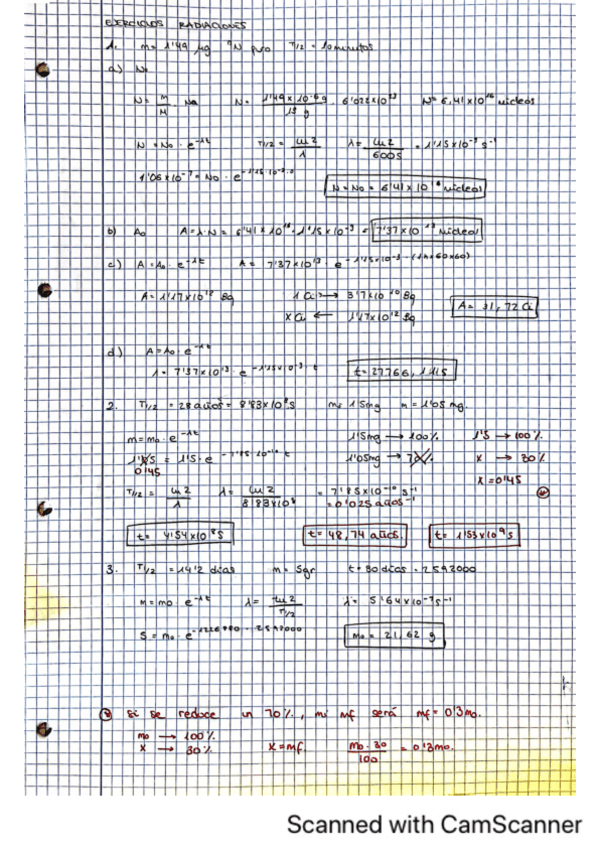 EJERCICIOS RADIACIONES
1. m = 1'49 µg N puro T1/2 = 10 minutos
a) No
N = m/M · Na N = 1'49 x 10^-6 g / 13 g · 6'022x10^23 N = 6,41 x 10^16 núcleos
N = No · e^-λt T1/2 = ln 2/λ λ = ln 2/600s = 1'15 x 10^-3 s^-1
1'06 x 10^-7 = No · e N = No = 6'41 x 10^16 núcleos
b) Ao A = λ·N = 6'41 x 10^16 · 1'15 x 10^-3 = 7'37 x 10^13 núcleos
c) A = Ao · e^-λt A = 7'37 x 10^13 · e^-1'15x10^-3 · (1h x 60 x 60)
A = 1'17x10^12 Bq 1 Ci → 3'7x10^10 Bq
x Ci ← 1'17x10^12 Bq A = 31,72 Ci
d) A = Ao · e^-λt
1 = 7'37x10^13 · e^-1'15x10^-3 · t t = 27766,141 s
2. T1/2 = 28 años = 8'83x10^8 s mo 1'5mg m = 1'05 mg.
m = mo · e^-λt 1'5mg → 100% 1'5 → 100%
= 1'5 · e t 1'05mg → x → 30%
0'45 x = 0'45
T1/2 = ln 2/λ λ = ln 2/8'83x10^8 = 7'85x10^-10 s^-1
= 0'025 años^-1
t = 4'54x10^8 s t = 48,74 años. t = 1'53x10^9 s
3. T1/2 = 14'2 días m = 5gr t = 30 días = 2592000
m = mo · e^-λt λ = ln 2/T1/2 λ = 5'64x10^-7 s^-1
5 = mo · e · 2592000 mo = 21,62 g
si se reduce un 70%, mi mf será mf = 0'3mo.
mo → 100%
x → 30% x = mf mo · 30/100 = 0'3mo.
Scanned with CamScanner